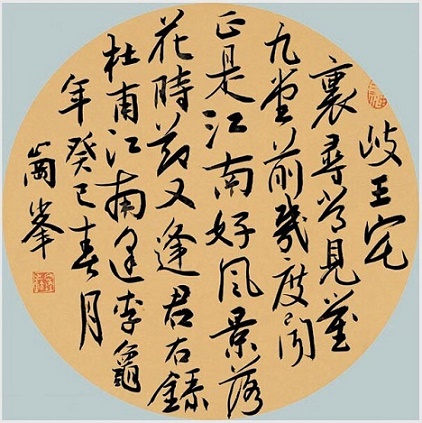 岐王宅
裏尋常見崔
九堂前幾度聞
正是江南好風景落
花時節又逢君右錄
杜甫江南逢李龜
年癸巳春月
峯